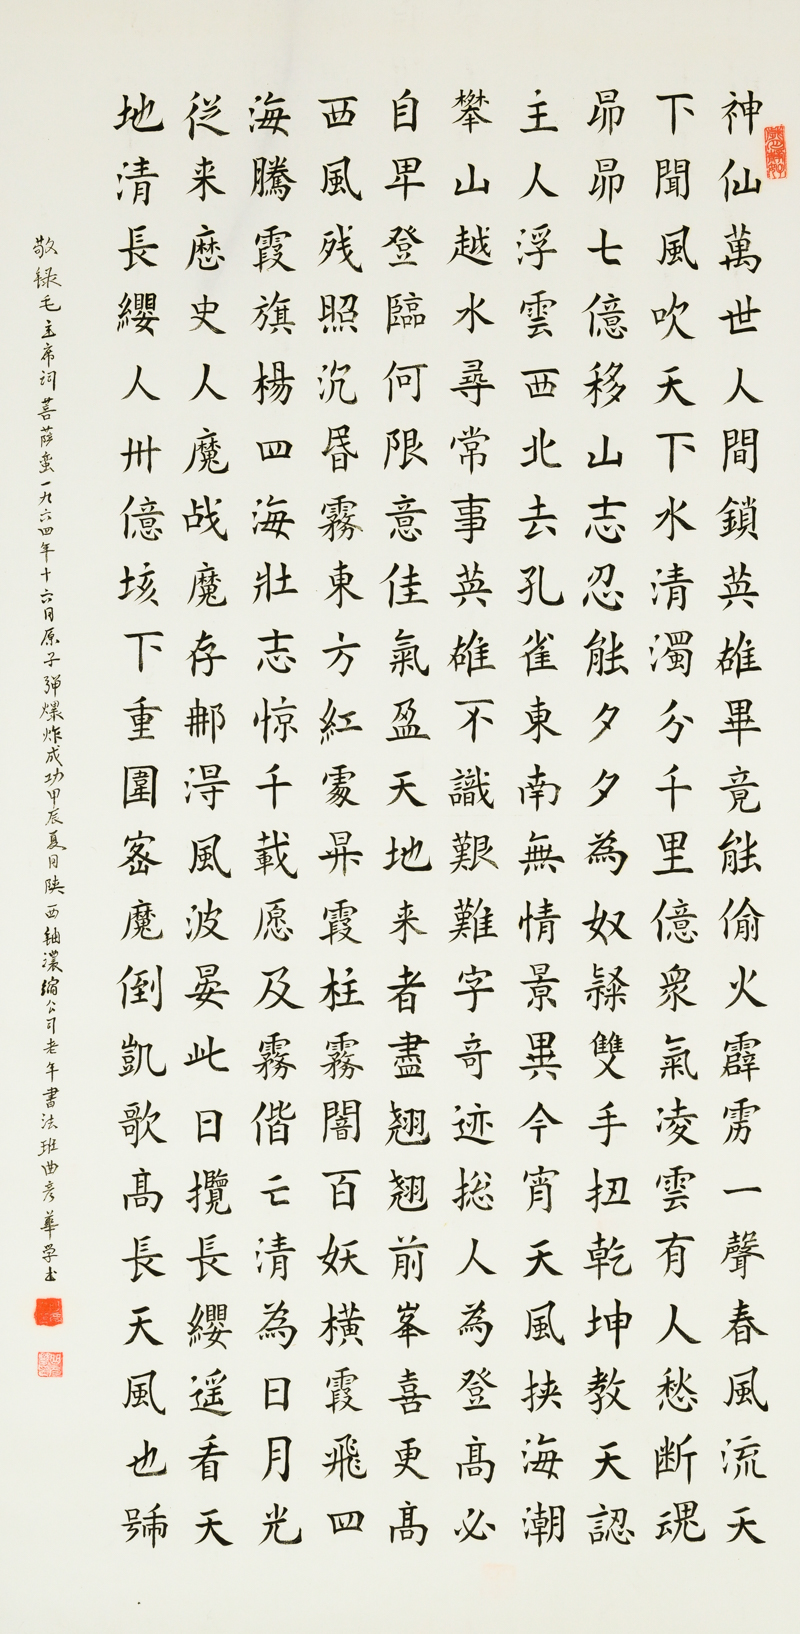 神仙萬世人間鎖英雄畢竟能偷火霹雳一聲春風流天
下聞風吹天下水清濁分千里億衆氣凌雲有人愁断魂
昴昴七億移山志忍能夕夕為奴隸雙手扭乾坤教天認
主人浮雲西北去孔雀東南無情景異今宵天風挟海潮
攀山越水尋常事英雄不識艱難字奇迹総人為登高必
自卑登臨何限意佳氣盈天地来者盡翘翘前峯喜更高
西風残照沉昏霧東方紅處昇霞柱霧闇百妖横霞飛四
海騰霞旗楊四海壮志惊千載愿及霧偕亡清為日月光
従来歴史人魔战魔存那淂風波晏此日攬長纓遥看天
地清長纓人卅億垓下重圍密魔倒凱歌高長天風也號
敬録毛主席词菩萨蛮一九六四年十六日原子弹爆炸成功甲辰夏月陕西轴濃缩公司老年書法班曲彦華学书